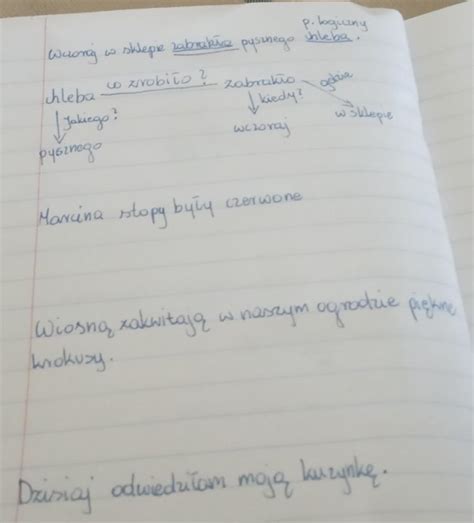 p. logiczny
Wczoraj w sklepie zabrakło pysznego chleba.
chleba co zrobiło? zabrakło gdzie
Jakiego? kiedy? w sklepie
wczoraj
pysznego
Marcina stopy były czerwone
Wiosną zakwitają w naszym ogrodzie piękne
krokusy.
Dzisiaj odwiedziłam moją kuzynkę.